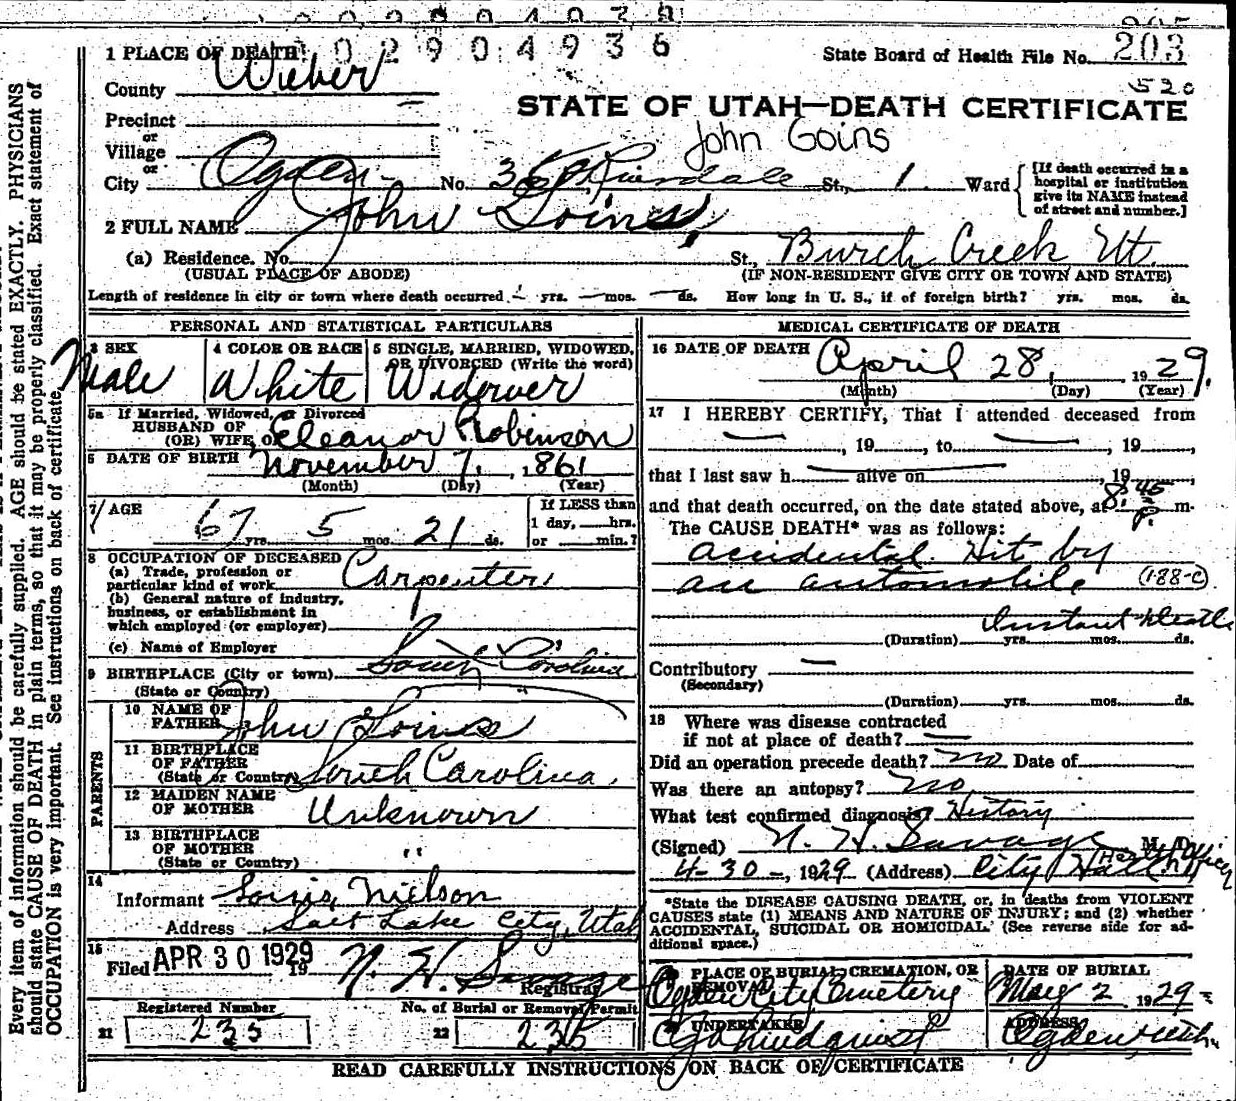 002904936
State Board of Health File No. 203
1 PLACE OF DEATH
County Weber
520
STATE OF UTAH—DEATH CERTIFICATE
Precinct
or
Village
John Goins
or
City Ogden No. Riverdale St., 1 Ward
[If death occurred in a hospital or institution give its NAME instead of street and number.]
2 FULL NAME John Goins
(a) Residence. No. St., Burch Creek Ut.
(USUAL PLACE OF ABODE) (IF NON-RESIDENT GIVE CITY OR TOWN AND STATE)
Length of residence in city or town where death occurred — yrs. — mos. — ds. How long in U. S., if of foreign birth? yrs. mos. ds.
PERSONAL AND STATISTICAL PARTICULARS
3 SEX Male
4 COLOR OR RACE White
5 SINGLE, MARRIED, WIDOWED, OR DIVORCED (Write the word) Widower
5a If Married, Widowed, or Divorced
HUSBAND OF
(OR) WIFE OF Eleanor Robinson
6 DATE OF BIRTH November 7, 1861
(Month) (Day) (Year)
7 AGE 67 yrs. 5 mos. 21 ds.
If LESS than
1 day, hrs.
or min.?
8 OCCUPATION OF DECEASED
(a) Trade, profession or particular kind of work Carpenter
(b) General nature of industry,
business, or establishment in
which employed (or employer)
(c) Name of Employer
9 BIRTHPLACE (City or town) South Carolina
(State or Country)
PARENTS
10 NAME OF FATHER John Goins
11 BIRTHPLACE OF FATHER (State or Country) South Carolina
12 MAIDEN NAME OF MOTHER Unknown
13 BIRTHPLACE OF MOTHER (State or Country) "
14
Informant Louis Nielson
Address Salt Lake City, Utah
15
Filed APR 30 1929 19 N. H. Savage
Registrar
Registered Number No. of Burial or Removal Permit
21 235 22 235
MEDICAL CERTIFICATE OF DEATH
16 DATE OF DEATH April 28, 1929.
(Month) (Day) (Year)
17 I HEREBY CERTIFY, That I attended deceased from
—, 19 , to —, 19 ,
that I last saw h — alive on , 19 ,
and that death occurred, on the date stated above, at 8:45 P. m.
The CAUSE DEATH* was as follows:
accidental. Hit by
an automobile (188-c)
Instant Death
(Duration) yrs. mos. ds.
Contributory —
(Secondary)
(Duration) yrs. mos. ds.
18 Where was disease contracted
if not at place of death? —
Did an operation precede death? no Date of
Was there an autopsy? no
What test confirmed diagnosis? History
(Signed) N. H. Savage M. D.
Health Officer
4-30-, 1929 (Address) City Hall
*State the DISEASE CAUSING DEATH, or, in deaths from VIOLENT
CAUSES state (1) MEANS AND NATURE OF INJURY; and (2) whether
ACCIDENTAL, SUICIDAL OR HOMICIDAL. (See reverse side for ad-
ditional space.)
PLACE OF BURIAL, CREMATION, OR REMOVAL Ogden City Cemetery
DATE OF BURIAL May 2 1929
UNDERTAKER Lindquist
ADDRESS Ogden, Utah.
READ CAREFULLY INSTRUCTIONS ON BACK OF CERTIFICATE
Every item of information should be carefully supplied. AGE should be stated EXACTLY. PHYSICIANS
should state CAUSE OF DEATH in plain terms, so that it may be properly classified. Exact statement of
OCCUPATION is very important. See instructions on back of certificate.